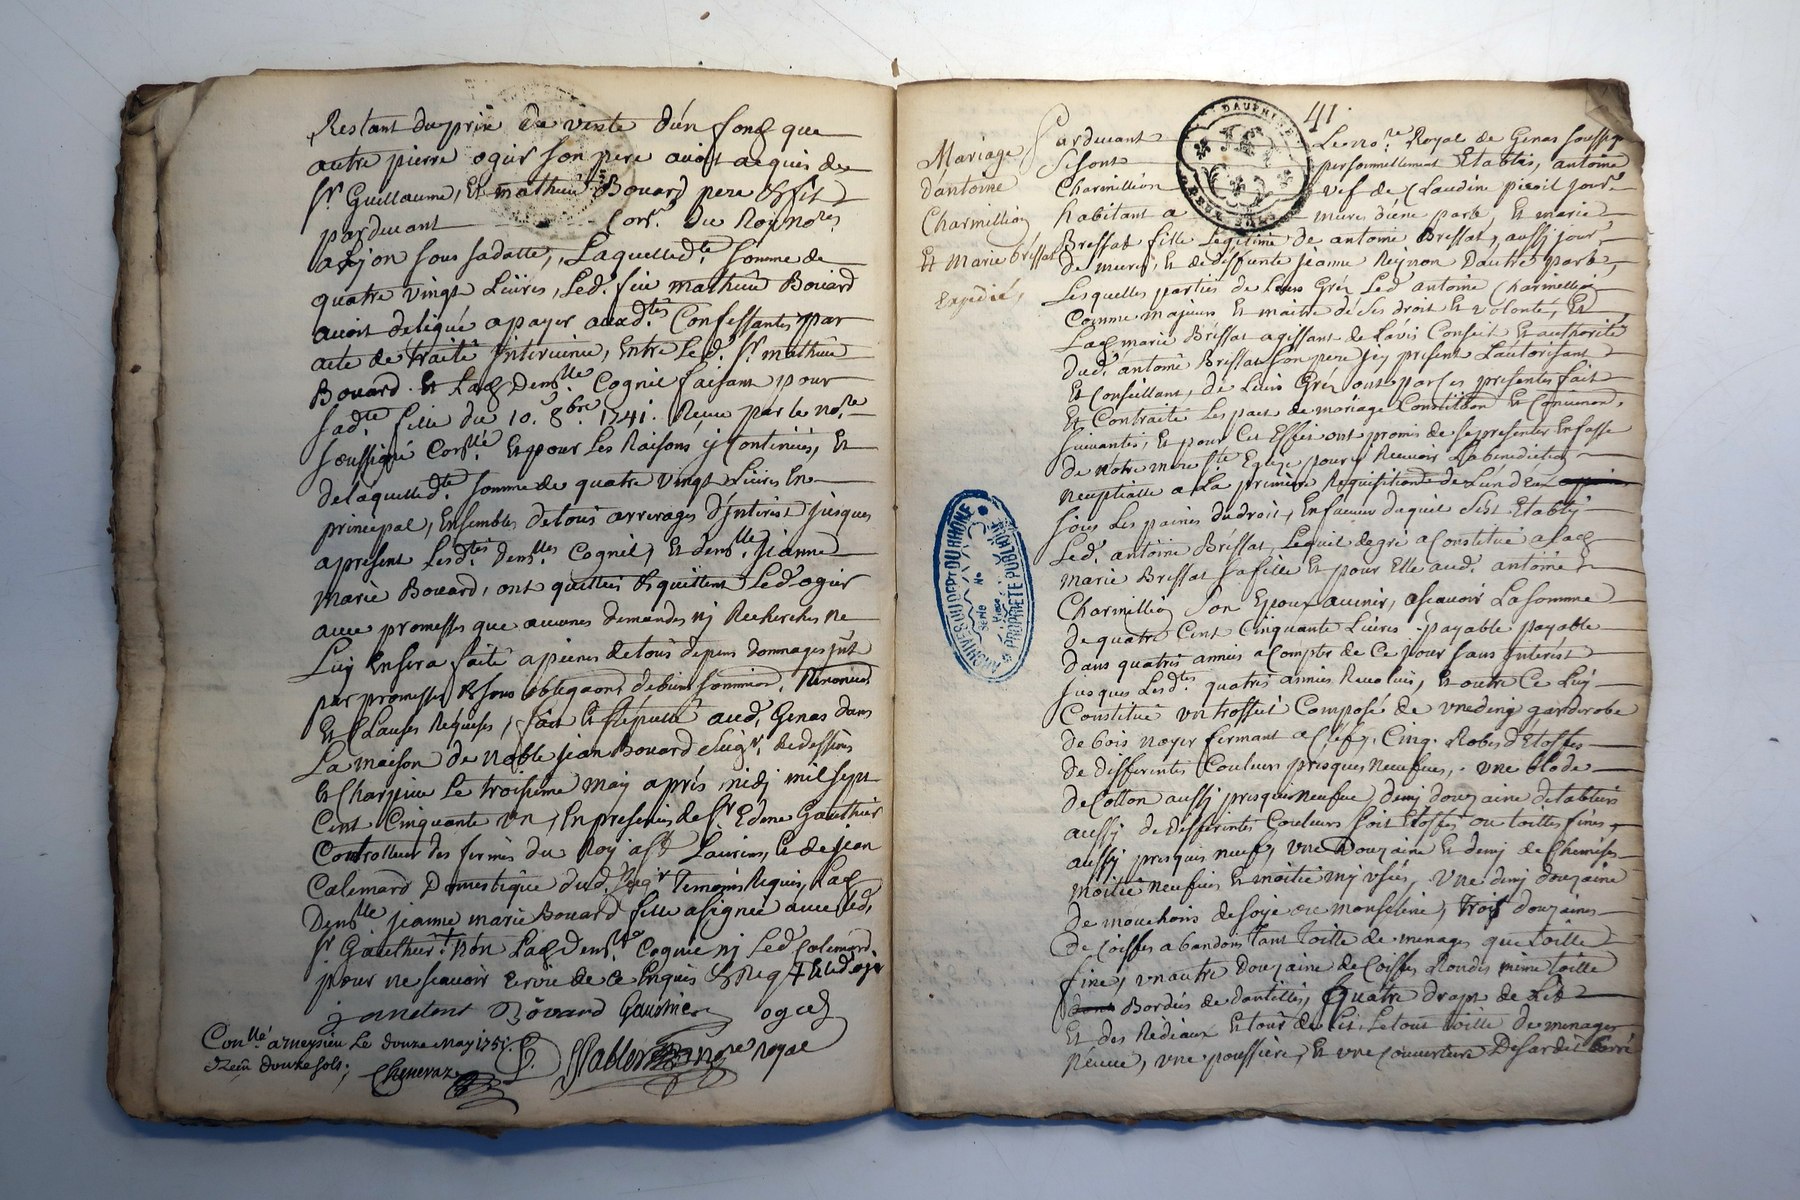 Restant du prix de vente d'un fond que
autre pierre ogier son pere avoit acquis de
Sr. Guillaume, Et mathieu Bouard pere & fils
pardevant Corr. du Roy nores
a Lyon sous sa datte, Laquelle dte. somme de
quatre vingt Livres, Led. feu mathieu Bouard
avoit delegué a payer auxdtes Confessantes par
acte de traité Intervenue, Entre Led. Sr. mathieu
Bouard Et Lad Demlle Cognié faisant pour
sadte fille du 10. 8bre. 1741. Reçue par le nore
soussigné Corllé Et pour Les Raisons y Continües, Et
de laquelle dte. somme de quatre vingt Livres En
principal, Ensembles de tous arrerages d'Interest jusques
apresent Lesdtes Demlles Cognié, Et demlle. jeanne
Marie Bouard, ont quittées & quittent Led ogier
avec promesses que aucunes demandes ny Recherches ne
Luy Ensera faite a peines de tous depens dommages jnt
par promesses & sous obligaons de biens Renonces
Et Clauses Requises, fait Et aud. Genas dans
La maison de noble jean Bouard Seigr. de dessines
Et Charpieu Le troisieme may aprés midj mil sept
Cent Cinquante un, En presences de Sr. Edme Gauthier
Controlleur des fermes du Roy a St Laurens, Et de jean
Calemard Domestique dud. Seigr Temoins Requis, Lad
Demlle jeanne marie Bouard fille a signée avec Led.
Sr. Gauthier + non Lad demlle Cognié nj Led Calemard
pour ne scavoir Ecrire de ce Enquis & Req + Et led ogier
Bouard Gauthier ogier
nore royal
Conllé a meysieu Le douze May 1751.
Receu douze sols; Chenevaz
41
Mariage
dantoine
Charmillion
Et Marie brissat
Expedié,
Pardevant Le nore Royal de Genas soussigné
se sont personnellement Etablis, antoine
Charmillion vef de Claudine jour.
habitant a mures d'une part, Et marie
Brissat fille Legitime de antoine Brissat, aussy jour.
de mures, Et de deffunte jeanne Reynon d'autre part,
Lesquelles parties de Leurs Grés Led antoine Charmillion
Comme majeur Et maitre de ses droit Et volonté, Et
Lad marie Brissat agissant de Lavis Conseil Et authorité
dud. antoine Brissat son pere jcy present Lautorisant
Et Conseillant, de Leurs Gréz ont par ces presentes fait
Et Contraité Les pact de mariage Constitution Et Convenon.
suivantes, Et pour Cet Effet ont promis de se presenter En fasse
de notre mere Ste Eglize pour y Recevoir La benediction
neuptialle a La premiere Requisition de L'un d'Eux
sous Les peines du droit, En faveur duquel s'Est Etably
Led. antoine Brissat, Lequel de gré a Constitué a Lad
marie Brissat sa fille Et pour Elle aud. antoine
Charmillion son Epoux avenir, ascavoir La somme
de quatre Cent Cinquante Livres payable payable
dans quatres années a Compter de Ce jour sans Interest
jusques Lesdtes quatres années Revolues, Et outre Ce Luy
Constitué un trossel Composé de garderobe
de bois noyer fermant a Clef, Cinq Robes d'Etoffes
de differentes Couleurs presques neufves, une blode
de Cotton aussy presques neufve, demj douzaine de tabliers
aussy de differentes Couleurs soit Etoffes ou toilles fines,
aussy presques neufs, une Douzaine Et demj de Chemises
moitié neufves Et moitié mj usées, une demj douzaine
de mouchoirs de soye ou mousseline, trois douzaines
de Coiffes a bandons tant toille de menages que toille
fine, un autre Douzaine de Coiffes Rondes même toille
Bordées de dantelles, Quatre draps de Lit
Et des Rediaux Et tour de Lit, Le tout toille de menages
neuve, une poussiere, Et une Couverture barré
DAUPHINE
ARCHIVES DU DEPt DU RHÔNE
Série
No
Pièce
PROPRIÉTÉ PUBLIQUE